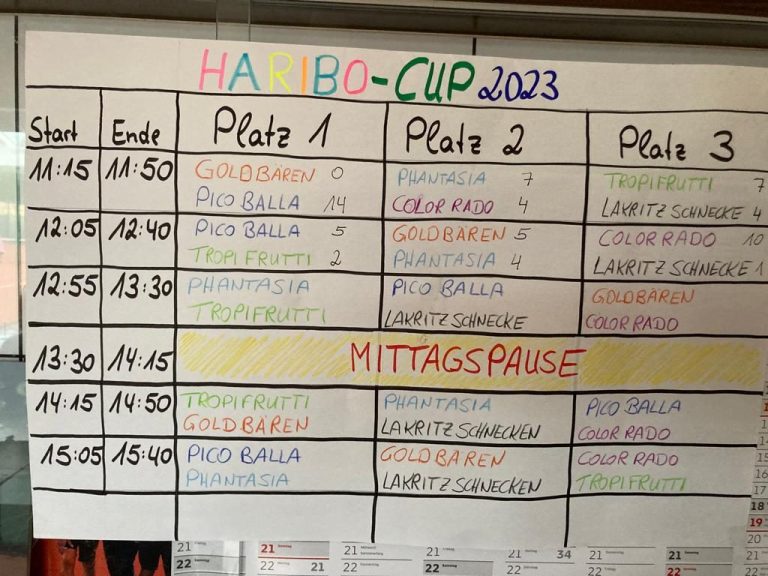 HARIBO-CUP 2023
Start Ende Platz 1 Platz 2 Platz 3
11:15 11:50 GOLDBÄREN 0 PHANTASIA 7 TROPIFRUTTI 7
PICO BALLA 14 COLOR RADO 4 LAKRITZ SCHNECKE 4
12:05 12:40 PICO BALLA 5 GOLDBÄREN 5 COLOR RADO 10
TROPI FRUTTI 2 PHANTASIA 4 LAKRITZ SCHNECKE 1
12:55 13:30 PHANTASIA PICO BALLA GOLDBÄREN
TROPIFRUTTI LAKRITZ SCHNECKE COLOR RADO
13:30 14:15 MITTAGSPAUSE
14:15 14:50 TROPIFRUTTI PHANTASIA PICO BALLA
GOLDBÄREN LAKRITZ SCHNECKEN COLOR RADO
15:05 15:40 PICO BALLA GOLDBÄREN COLOR RADO
PHANTASIA LAKRITZ SCHNECKEN TROPIFRUTTI
15
16
17
18
19
20
21 21 21 21 21 34 21 21 21
22 22 21 22 22 22 22 22 22